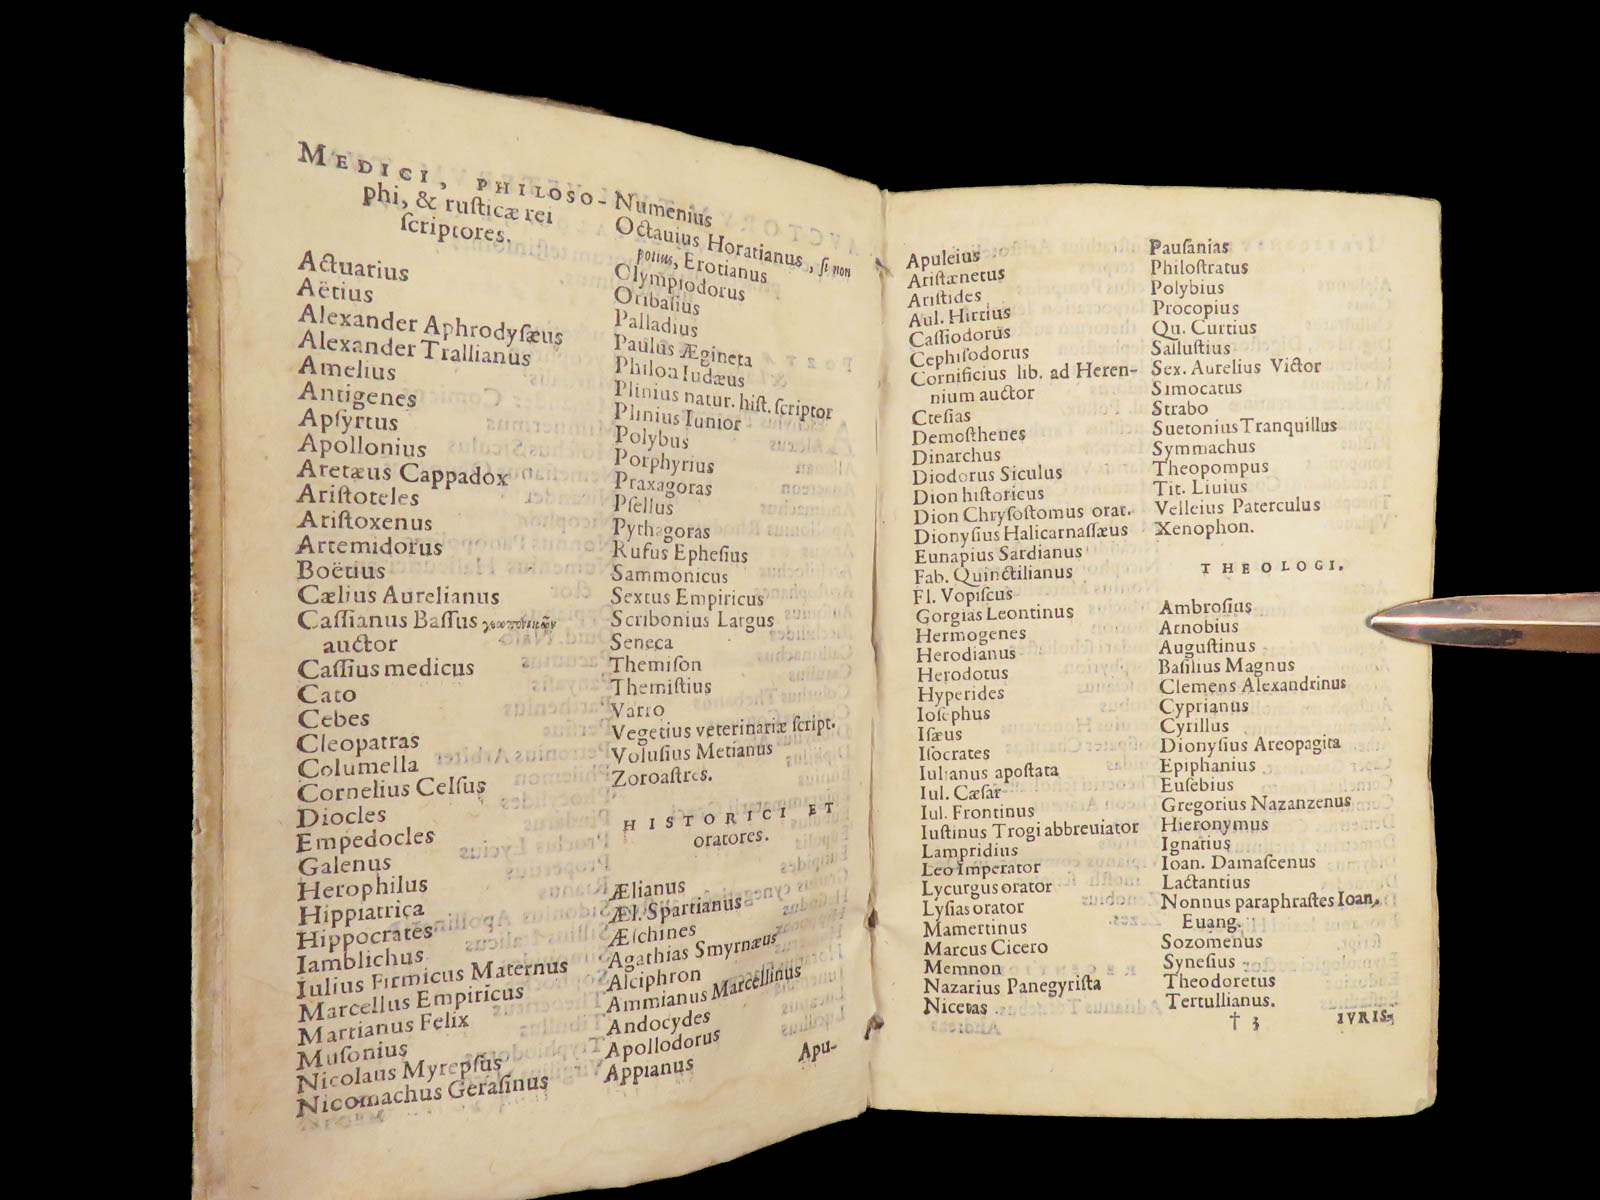 MEDICI, PHILOSO-
phi, & ruſticæ rei
ſcriptores.
Actuarius
Aëtius
Alexander Aphrodyſæus
Alexander Trallianus
Amelius
Antigenes
Apſyrtus
Apollonius
Aretæus Cappadox
Ariſtoteles
Ariſtoxenus
Artemidorus
Boëtius
Cælius Aurelianus
Caſſianus Baſſus γεωπονικῶν
auctor
Caſſius medicus
Cato
Cebes
Cleopatras
Columella
Cornelius Celſus
Diocles
Empedocles
Galenus
Herophilus
Hippiatrica
Hippocrates
Iamblichus
Iulius Firmicus Maternus
Marcellus Empiricus
Martianus Felix
Muſonius
Nicolaus Myrepſus
Nicomachus Geraſinus
Numenius
Octauius Horatianus, ſi non
potius, Erotianus
Olympiodorus
Oribaſius
Palladius
Paulus Ægineta
Philoa Iudæus
Plinius natur. hiſt. ſcriptor
Plinius Iunior
Polybus
Porphyrius
Praxagoras
Pſellus
Pythagoras
Rufus Epheſius
Sammonicus
Sextus Empiricus
Scribonius Largus
Seneca
Themiſon
Themiſtius
Varro
Vegetius veterinariæ ſcript.
Voluſius Metianus
Zoroaſtres.
HISTORICI ET
oratores.
Ælianus
Æl. Spartianus
Æſchines
Agathias Smyrnæus
Alciphron
Ammianus Marcellinus
Andocydes
Apollodorus
Appianus
Apu-
Apuleius
Ariſtænetus
Ariſtides
Aul. Hirtius
Caſſiodorus
Cephiſodorus
Cornificius lib. ad Heren-
nium auctor
Cteſias
Demoſthenes
Dinarchus
Diodorus Siculus
Dion hiſtoricus
Dion Chryſoſtomus orat.
Dionyſius Halicarnaſſæus
Eunapius Sardianus
Fab. Quinctilianus
Fl. Vopiſcus
Gorgias Leontinus
Hermogenes
Herodianus
Herodotus
Hyperides
Ioſephus
Iſæus
Iſocrates
Iulianus apoſtata
Iul. Cæſar
Iul. Frontinus
Iuſtinus Trogi abbreuiator
Lampridius
Leo Imperator
Lycurgus orator
Lyſias orator
Mamertinus
Marcus Cicero
Memnon
Nazarius Panegyriſta
Nicetas
Pauſanias
Philoſtratus
Polybius
Procopius
Qu. Curtius
Salluſtius
Sex. Aurelius Victor
Simocatus
Strabo
Suetonius Tranquillus
Symmachus
Theopompus
Tit. Liuius
Velleius Paterculus
Xenophon.
THEOLOGI.
Ambroſius
Arnobius
Auguſtinus
Baſilius Magnus
Clemens Alexandrinus
Cyprianus
Cyrillus
Dionyſius Areopagita
Epiphanius
Euſebius
Gregorius Nazanzenus
Hieronymus
Ignatius
Ioan. Damaſcenus
Lactantius
Nonnus paraphraſtes Ioan.
Euang.
Sozomenus
Syneſius
Theodoretus
Tertullianus.
† 3 IVRIS-